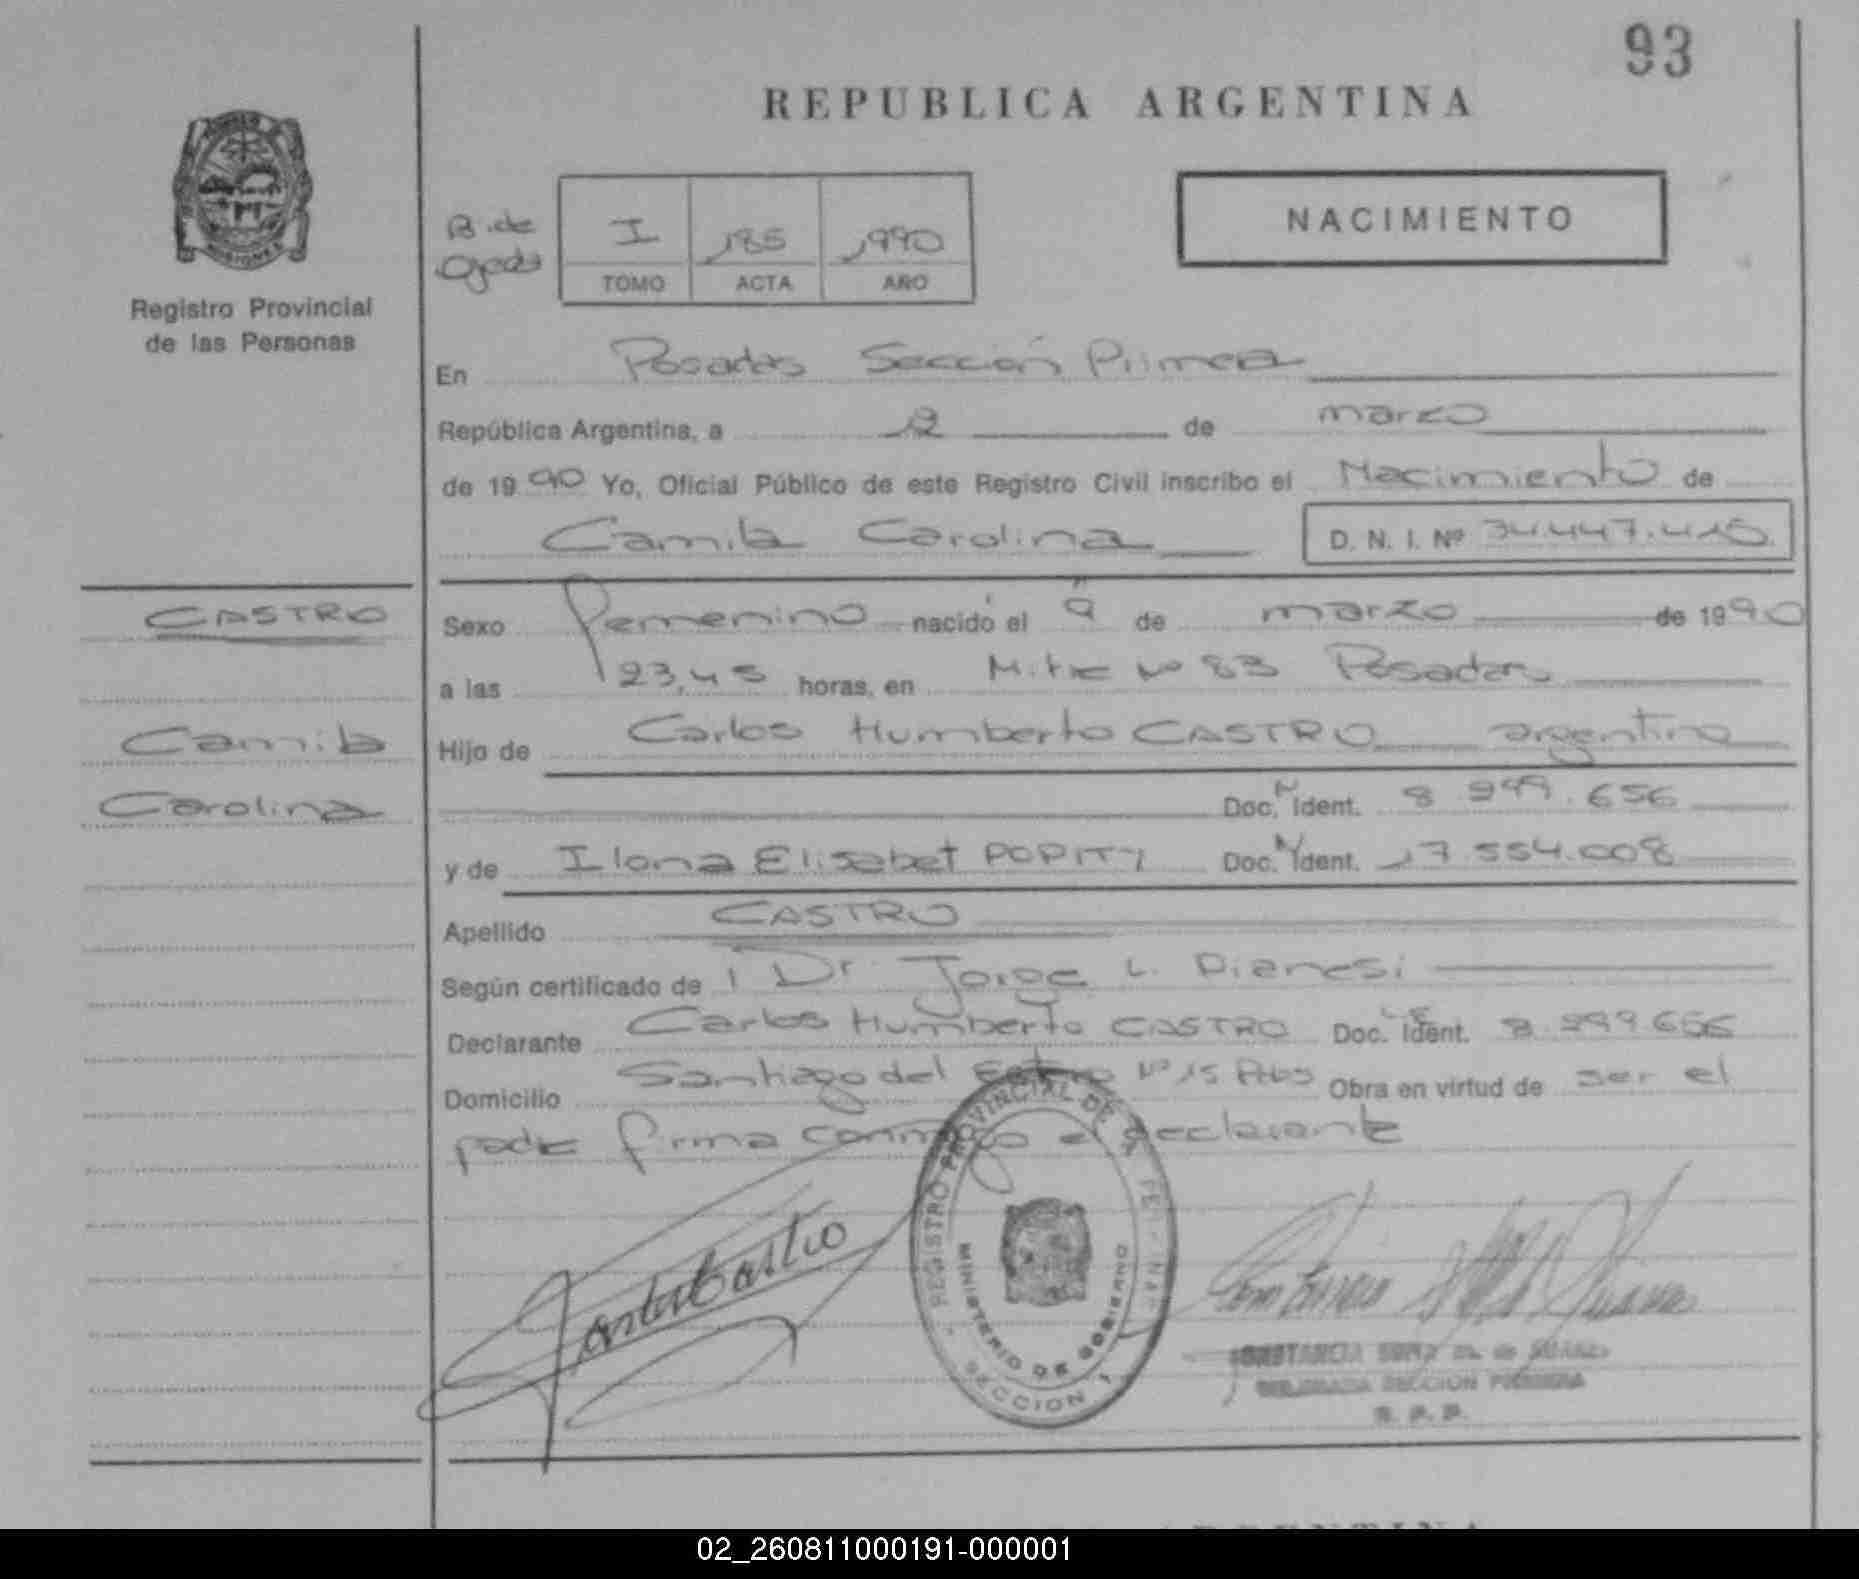 93
REPUBLICA ARGENTINA
NACIMIENTO
B. de
I 185 1990
TOMO ACTA AÑO
Registro Provincial
de las Personas
En Posadas Sección Primera
República Argentina, a de marzo
de 1990 Yo, Oficial Público de este Registro Civil inscribo el Nacimiento de
Camila Carolina D. N. I. Nº 34.447.415
CASTRO
Sexo Femenino nacido el de marzo de 1990
a las 23,45 horas, en Mitre Nº 83 Posadas
Camila
Hijo de Carlos Humberto CASTRO argentino
Carolina
Doc. Ident. 8 299.656
y de Ilona Elisabet POPITY Doc. Ident. 17.554.008
Apellido CASTRO
Según certificado de Dr. Jorge L. Pianesi
Declarante Carlos Humberto CASTRO Doc. Ident. 8 299.656
Domicilio Santiago del Estero Nº 15 Pdas Obra en virtud de ser el
padre firma conmigo el declarante
REGISTRO PROVINCIAL DE
MINISTERIO DE GOBIERNO
SECCION 1
SECCION PRIMERA
R. P. P.
02_260811000191-000001